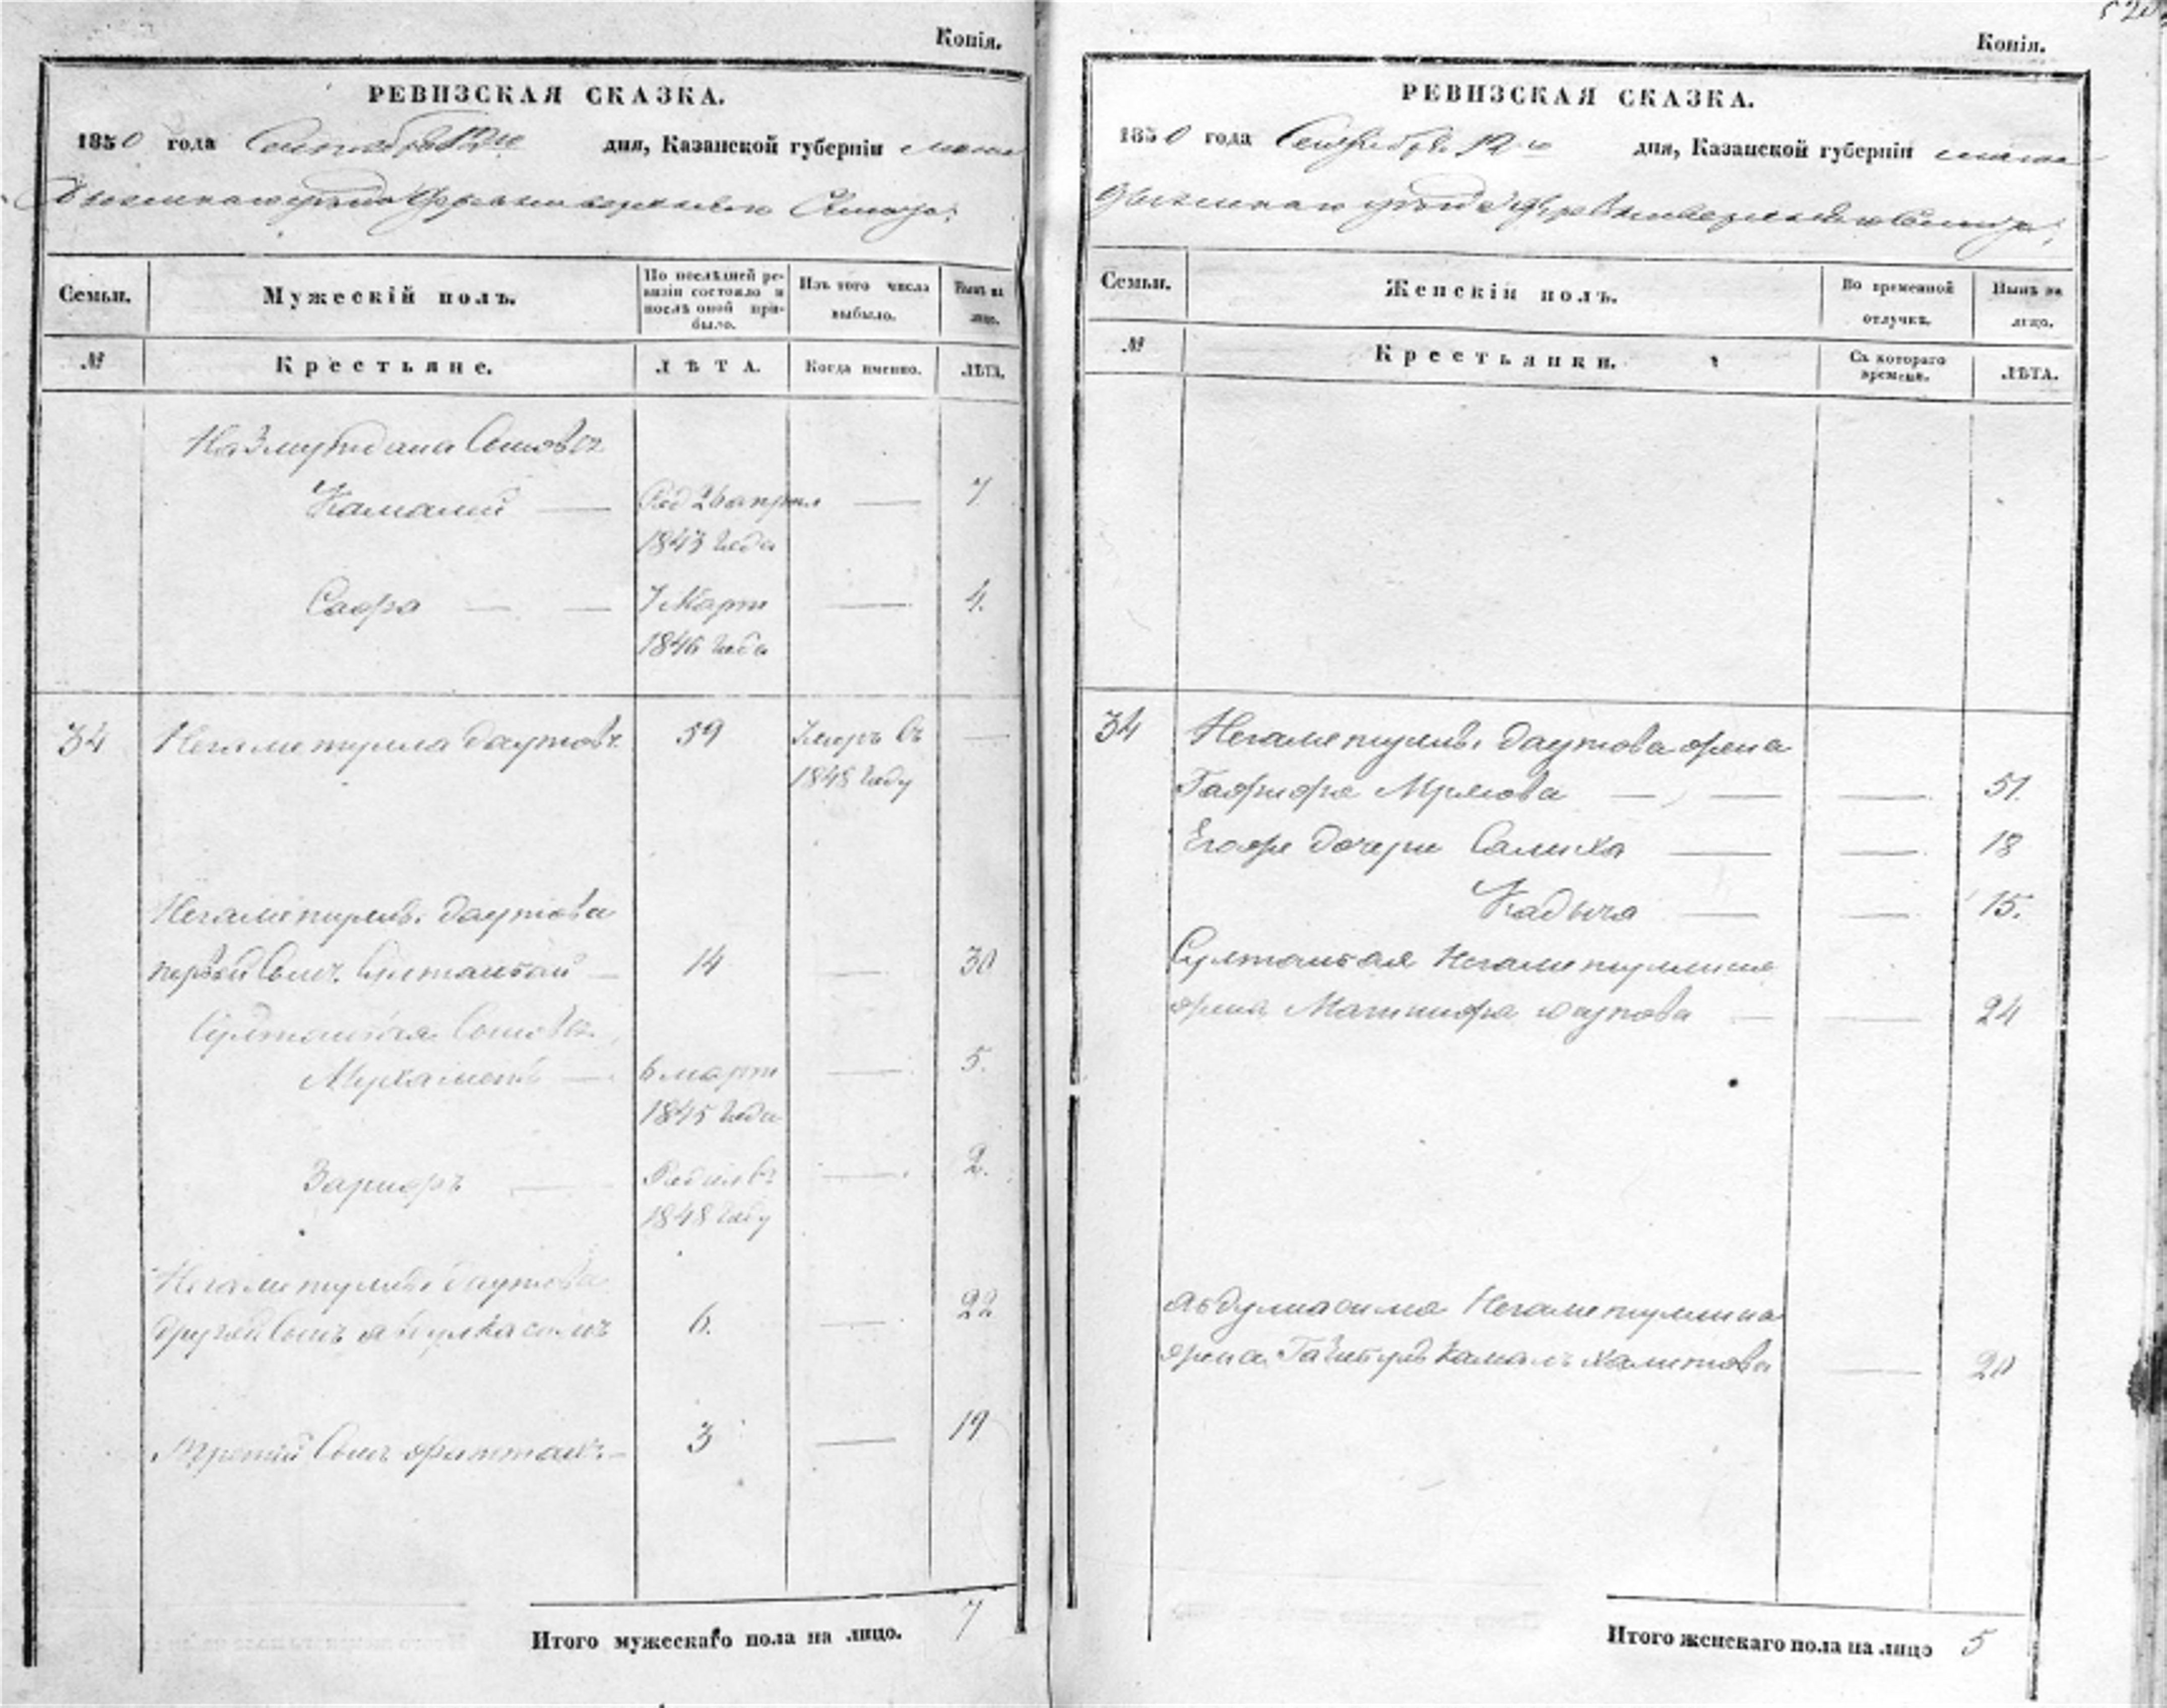 Копія.
РЕВИЗСКАЯ СКАЗКА.
1850 года Сентября 12го дня, Казанской губерніи мама
дышскаго уѣзда деревни
Семьи.
Мужескій полъ.
По послѣдней ре-
визіи состояло и
послѣ оной при-
было.
Изъ того числа
выбыло.
Нынѣ на
лицо.
№
Крестьяне.
ЛѢТА.
Когда именно.
ЛѢТА.
Сыновья
Камалій — Род 26 апреля — 7
1843 года
Сафа — — 7 Марта — 4.
1846 года
34 Негаметулла Даутовъ 59 Умеръ въ —
1848 году
Негаметуллы Даутова
первой Сынъ Султангай — 14 — 30
Султангая Сыновья
Мухаметъ — 6 марта — 5.
1845 года
Зарифъ — Родился въ — 2.
1848 году
Негаметуллы Даутова
другой Сынъ Абдулкасимъ 6. — 22
Третій Сынъ — 3 — 19
Итого мужескаго пола на лицо. 7
Копія.
РЕВИЗСКАЯ СКАЗКА.
1850 года Сентября 12го дня, Казанской губерніи мама
дышскаго уѣзда деревни
Семьи.
Женскій полъ.
Во временной
отлучкѣ.
Нынѣ на
лицо.
№
Крестьянки.
Съ котораго
времени.
ЛѢТА.
34 Негаметуллы Даутова жена
— — — 51.
Егоже дочери Салиха — — 18
Кадыча — — 15.
Султангая Негаметуллина
жена — — 24
Абдулкасима Негаметуллина
жена Камалъ Халитова — 20
Итого женскаго пола на лицо 5